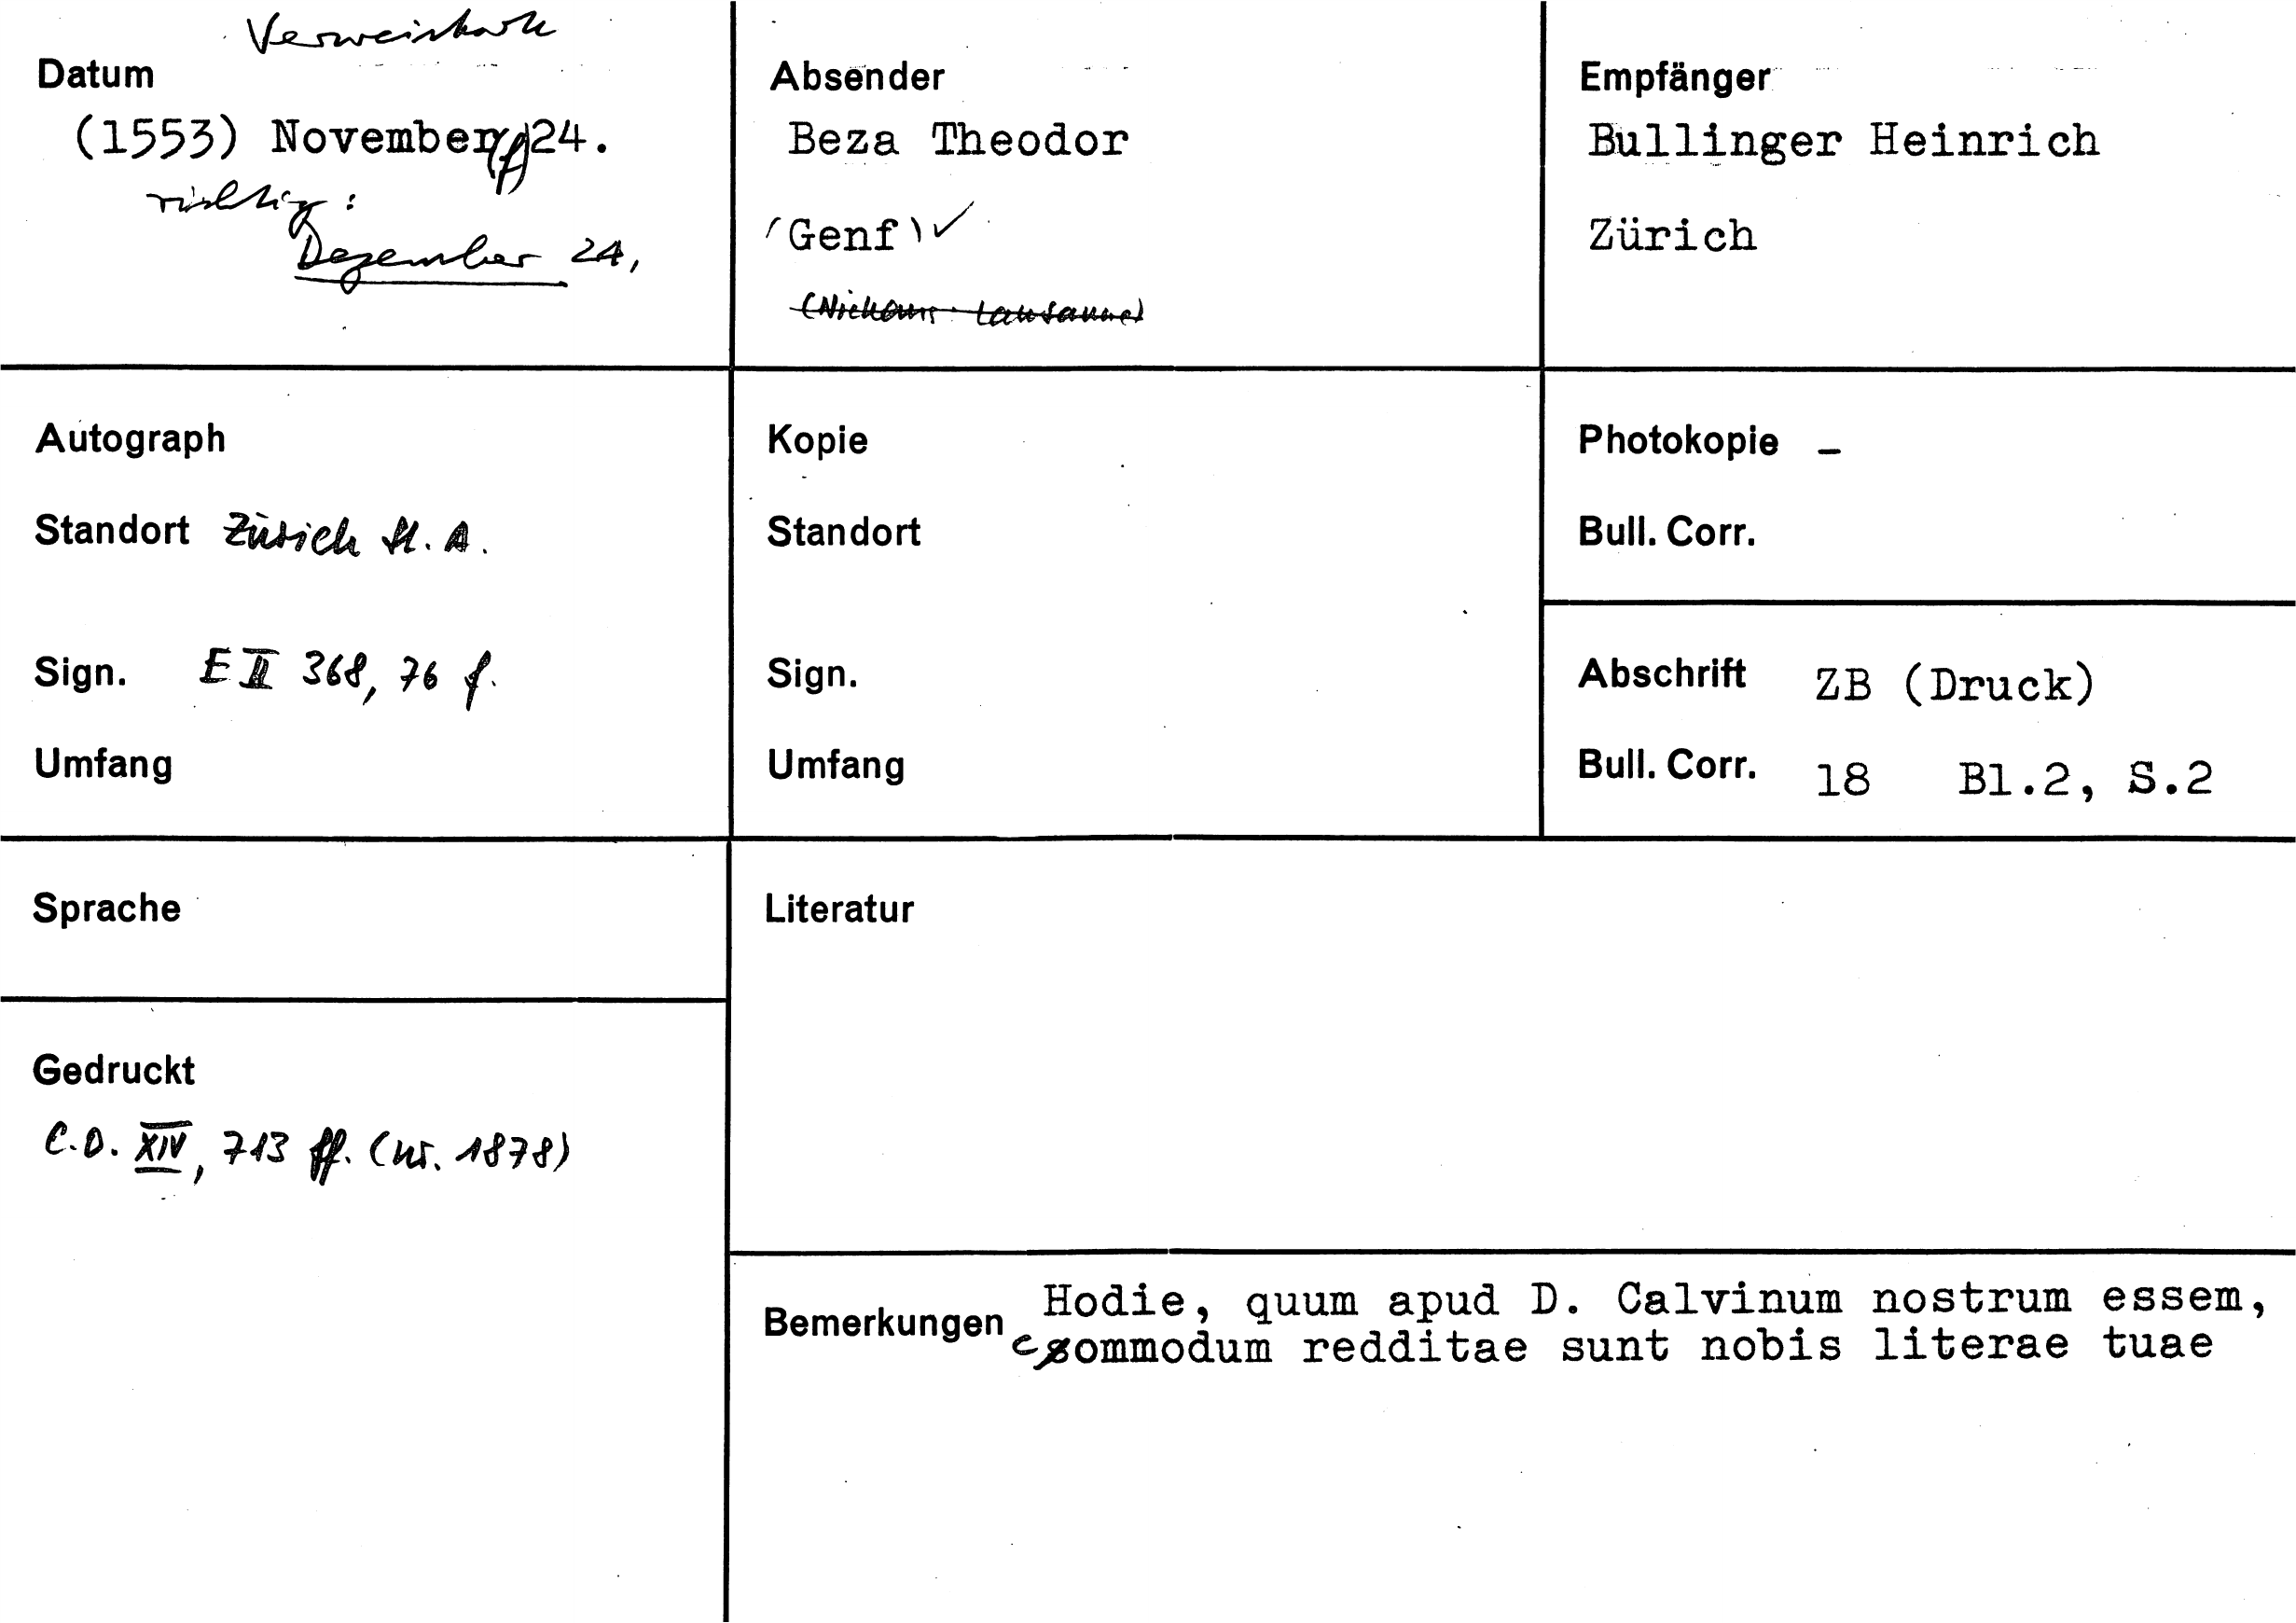 Verweiskarte
Datum
(1553) November(?)24.
richtig:
Dezember 24,
Absender
Beza Theodor
(Genf) ✓
Lausanne)
Empfänger
Bullinger Heinrich
Zürich
Autograph
Standort Zürich St. A.
Sign. E II 368, 76 f.
Umfang
Kopie
Standort
Sign.
Umfang
Photokopie –
Bull. Corr.
Abschrift ZB (Druck)
Bull. Corr. 18 Bl.2, S.2
Sprache
Gedruckt
C.O. XIV, 713 ff. (nr. 1878)
Literatur
Bemerkungen Hodie, quum apud D. Calvinum nostrum essem,
commodum redditae sunt nobis literae tuae